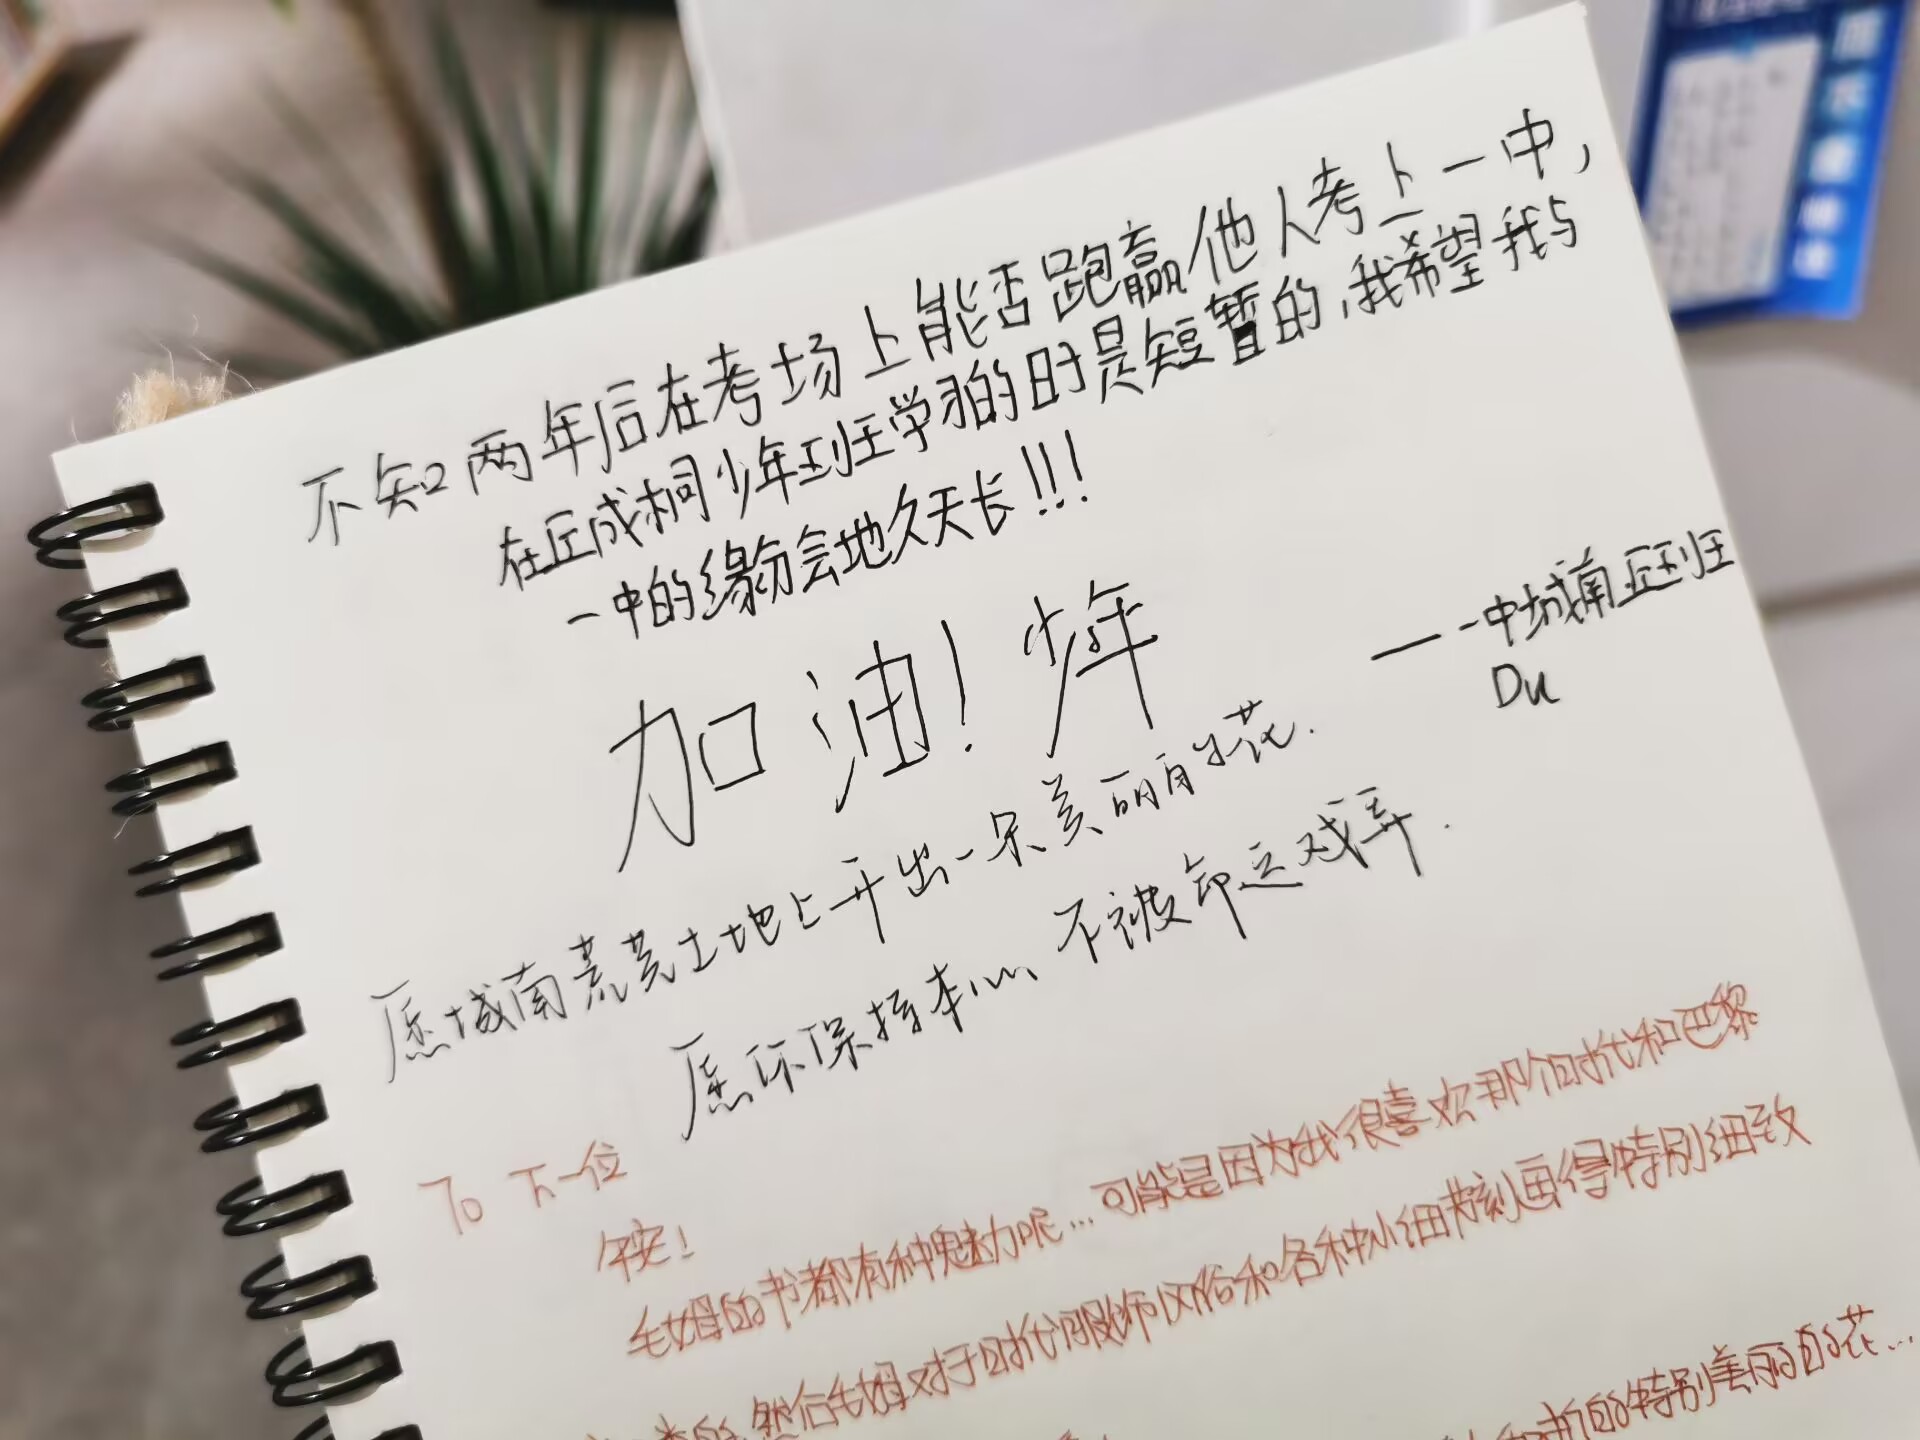 不知两年后在考场上能否跑赢他人考上一中,
在丘成桐少年班学习的时是短暂的,我希望我与
一中的缘份会地久天长!!!
加油!少年
——一中城南丘班
Du
愿城南荒芜土地上开出一朵美丽的花.
愿你保持本心、不被命运戏弄.
To 下一位
午安!
毛姆的书都有种魅力呢...可能是因为我很喜欢那个时代和巴黎
然后毛姆对于时代服饰风俗和各种小细节刻画得特别细致
的特别美丽的花...